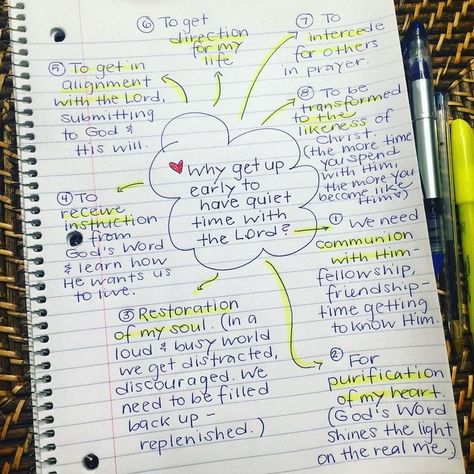 Why get up
early to
have quiet
time with
the Lord?
① We need
communion
with Him-
fellowship,
friendship-
time getting
to know Him.
② For
purification
of my heart.
(God's Word
shines the light
on the real me.)
③ Restoration
of my soul. (In a
loud & busy world
we get distracted,
discouraged. We
need to be filled
back up -
replenished.)
④ To
receive
instruction
from
God's Word
& learn how
He wants us
to live.
⑤ To get in
alignment
with the Lord,
submitting
to God &
His will.
⑥ To get
direction
for my
life
⑦ To
intercede
for others
in prayer.
⑧ To be
transformed
to the
likeness of
Christ.
(the more time
you spend
with Him,
the more you
become like
Him.)